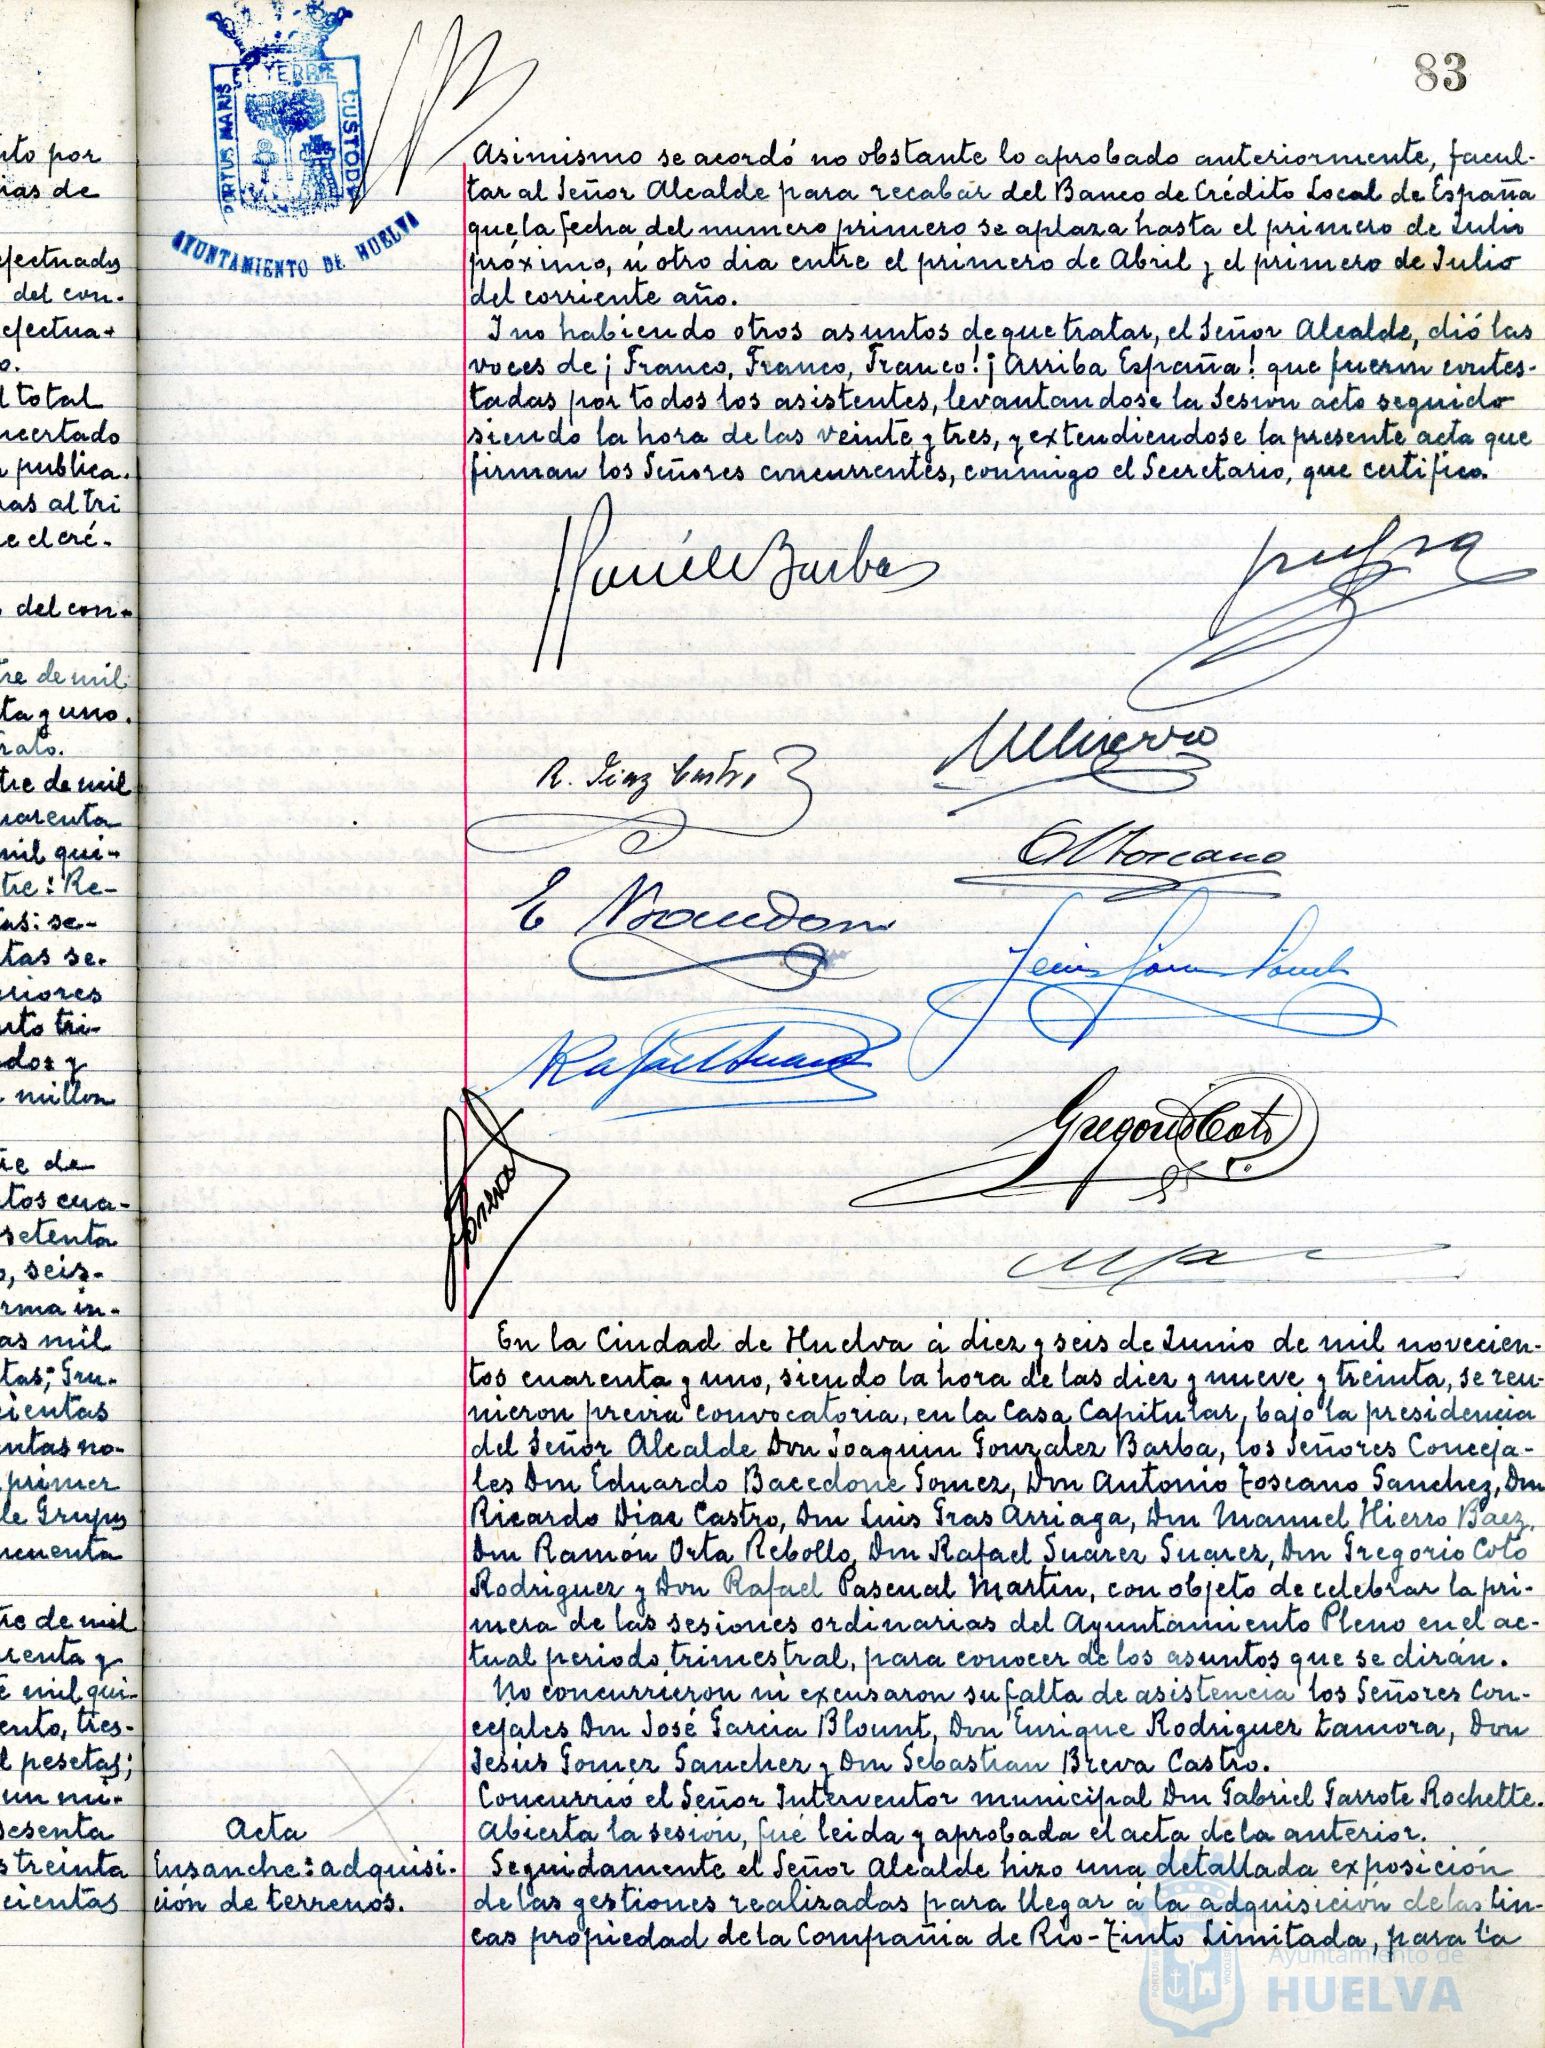 83
PORTUS MARIS ET TERRE CUSTODIA
AYUNTAMIENTO DE HUELVA
nto por
nias de
efectuados
del con-
efectua-
o.
l total
ncertado
n publica.
ras al tri
e el cré-
del con-
re de mil
ta y uno.
trato.
tre de mil
uarenta
mil qui-
tre: Re-
tas: se-
tas se-
eriores
nto tri-
ados y
millon
re de
tos cua-
setenta
o, seis-
rma in-
as mil
tas; Gru-
cientas
entas no-
primer
de Grupos
ncuenta
re de mil
renta y
e mil qui-
ento, tres-
l pesetas;
un mi-
sesenta
s treinta
cientas
Asimismo se acordó no obstante lo aprobado anteriormente, facul-
tar al Señor Alcalde para recabar del Banco de Crédito Local de España
que la fecha del numero primero se aplaza hasta el primero de Julio
próximo, u otro dia entre el primero de Abril y el primero de Julio
del corriente año.
I no habiendo otros asuntos de que tratar, el Señor Alcalde, dió las
voces de ¡Franco, Franco, Franco! ¡Arriba España! que fueron contes-
tadas por todos los asistentes, levantandose la Sesion acto seguido
siendo la hora de las veinte y tres, y extendiendose la presente acta que
firman los Señores concurrentes, conmigo el Secretario, que certifico.
Barba
R. Diaz Castro
MHierro
AToscano
E Bacedone
Jesus Gomez Sanchez
Rafael Suarez
Gregorio Coto
En la Ciudad de Huelva á diez y seis de Junio de mil novecien-
tos cuarenta y uno, siendo la hora de las diez y nueve y treinta, se reu-
nieron previa convocatoria, en la Casa Capitular, bajo la presidencia
del Señor Alcalde Don Joaquin Gonzalez Barba, los Señores Conceja-
les Don Eduardo Bacedone Gomez, Don Antonio Toscano Sanchez, Don
Ricardo Diaz Castro, Don Luis Gras Arriaga, Don Manuel Hierro Baez,
Don Ramón Orta Rebollo, Don Rafael Suarez Suarez, Don Gregorio Coto
Rodriguez y Don Rafael Pascual Martin, con objeto de celebrar la pri-
mera de las sesiones ordinarias del Ayuntamiento Pleno en el ac-
tual periodo trimestral, para conocer de los asuntos que se dirán.
No concurrieron ni excusaron su falta de asistencia los Señores Con-
cejales Don José Garcia Blount, Don Enrique Rodriguez Zamora, Don
Jesús Gomez Sanchez y Don Sebastian Breva Castro.
Concurrió el Señor Interventor municipal Don Gabriel Garrote Rochette.
Acta
Abierta la sesión, fué leida y aprobada el acta de la anterior.
Ensanche: adquisi-
cion de terrenos.
Seguidamente el Señor Alcalde hizo una detallada exposición
de las gestiones realizadas para llegar á la adquisición de las fin-
cas propiedad de la Compañia de Rio-Tinto Limitada, para la
Ayuntamiento de
HUELVA